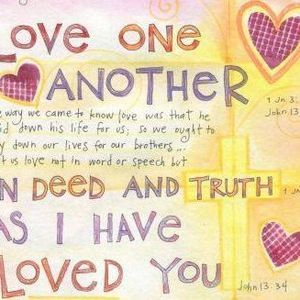 LOVE ONE
ANOTHER
1 Jn. 3:
John 13:
e way we came to know love was that he
id down his life for us; so we ought to
y down our lives for our brothers...
t us love not in word or speech but
IN DEED AND TRUTH
AS I HAVE
LOVED YOU
John 13:34